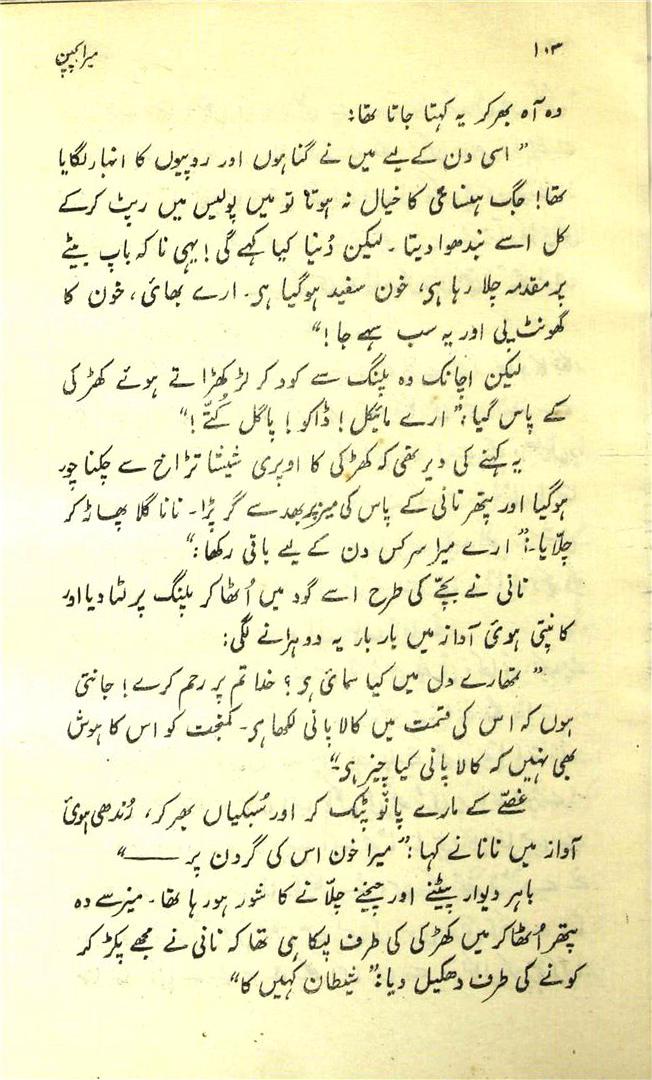 ۱۰۳
میرا بچپن
وہ آہ بھر کر یہ کہتا جاتا تھا:
” اسی دن کے لیے میں نے گناہوں اور روپیوں کا انبار لگایا
تھا! جگ ہنسائی کا خیال نہ ہوتا تو میں پولیس میں رپٹ کر کے
کل اسے بندھوا دیتا۔ لیکن دُنیا کیا کہے گی! یہی نا کہ باپ بیٹے
پر مقدمہ چلا رہا ہی، خون سفید ہوگیا ہی۔ ارے بھائی، خون کا
گھونٹ پی اور یہ سب سہے جا!“
لیکن اچانک وہ پلنگ سے کود کر لڑکھڑاتے ہوئے کھڑکی
کے پاس گیا:” ارے مائیکل! ڈاکو! پاگل کُتّے!“
یہ کہنے کی دیر تھی کہ کھڑکی کا اوپری شیشا تڑاخ سے چکنا چور
ہوگیا اور پتھر نانی کے پاس کی میز پر بھد سے گر پڑا۔ نانا گلا پھاڑ کر
چلّایا۔:” ارے میرا سر کس دن کے لیے باقی رکھا:“
نانی نے بچّے کی طرح اسے گود میں اُٹھا کر پلنگ پر لٹا دیا اور
کانپتی ہوئی آواز میں بار بار یہ دوہرانے لگی:
” تمھارے دل میں کیا سمائی ہی؟ خدا تم پر رحم کرے! جانتی
ہوں کہ اس کی قسمت میں کالا پانی لکھا ہی۔ کمبخت کو اس کا ہوش
بھی نہیں کہ کالا پانی کیا چیز ہی۔“
غصّے کے مارے پانو پٹک کر اور سُبکیاں بھر کر، رُندھی ہوئی
آواز میں نانا نے کہا:” میرا خون اس کی گردن پر ——“
باہر دیوار پیٹنے اور چیخنے چلّانے کا شور ہو رہا تھا۔ میز سے وہ
پتھر اُٹھا کر میں کھڑکی کی طرف لپکا ہی تھا کہ نانی نے مجھے پکڑ کر
کونے کی طرف دھکیل دیا:” شیطان کہیں کا“